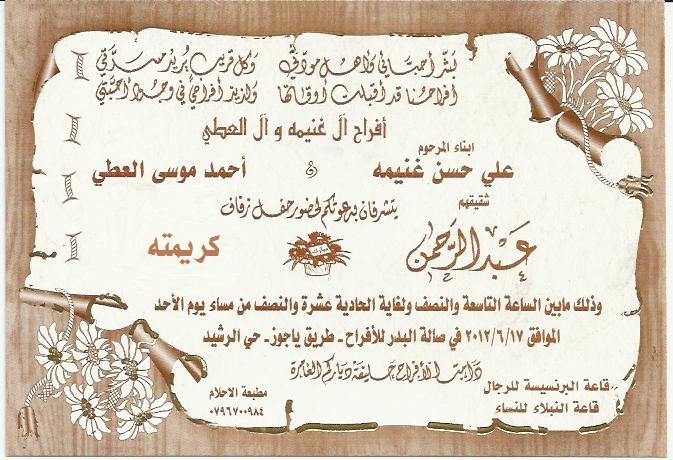 بشّر أحبابي وأهل مودتي وكل قريب يريد مسرتي
أفراحنا قد أقبلت أوقاتها ولذيذ أفراحي في وجود أحبتي
أفراح آل غنيمه و آل العطي
ابناء المرحوم
علي حسن غنيمه و أحمد موسى العطي
شقيقهم
يتشرفان بدعوتكم لحضور حفل زفاف
عبد الرحمن مبارك كريمته
وذلك مابين الساعة التاسعة والنصف ولغاية الحادية عشرة والنصف من مساء يوم الأحد
الموافق ٢٠١٢/٦/١٧ في صالة البدر للأفراح - طريق ياجوز - حي الرشيد
دامت الأفراح حليفة دياركم العامرة
قاعة البرنسيسة للرجال
قاعة النبلاء للنساء
مطبعة الاحلام
٠٧٩٦٧٠٠٩٨٤